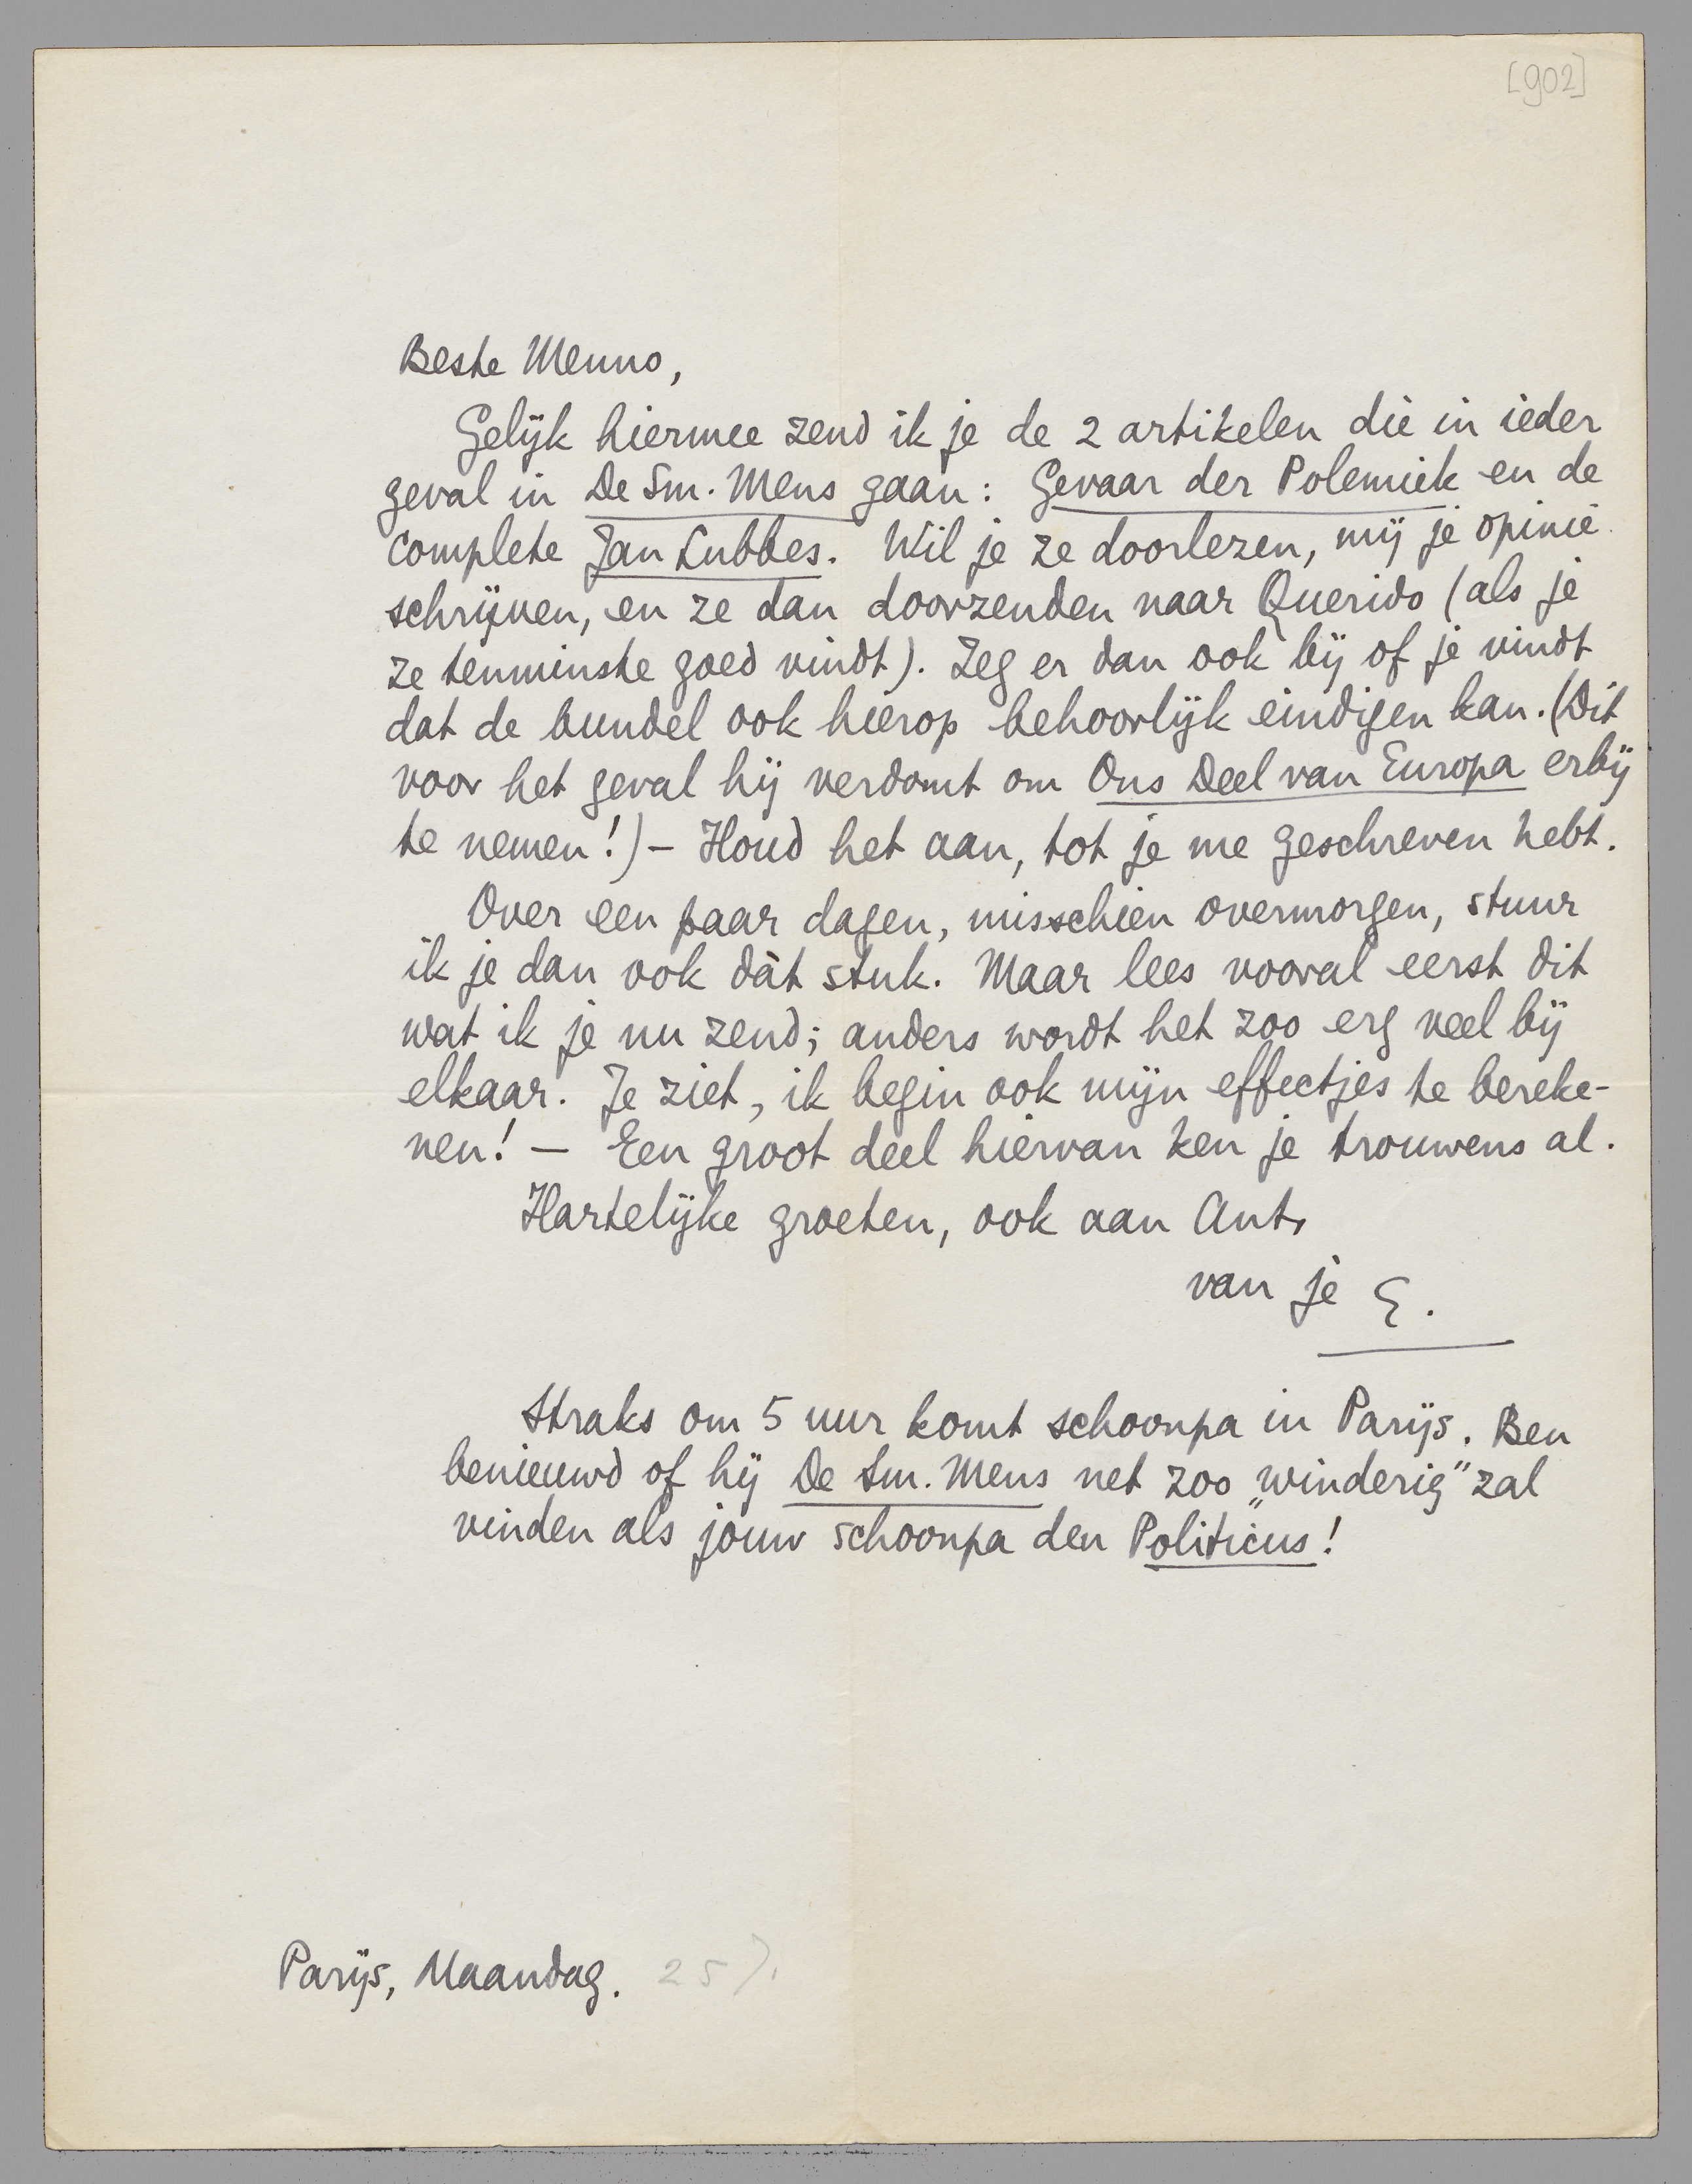 [902]
Beste Menno,
Gelijk hiermee zend ik je de 2 artikelen die in ieder
geval in De Sm. Mens gaan: Gevaar der Polemiek en de
complete Jan Lubbes. Wil je ze doorlezen, mij je opinie
schrijven, en ze dan doorzenden naar Querido (als je
ze tenminste goed vindt). Zeg er dan ook bij of je vindt
dat de bundel ook hierop behoorlijk eindigen kan. (Dit
voor het geval hij verdomt om Ons Deel van Europa erbij
te nemen!) – Houd het aan, tot je me geschreven hebt.
Over een paar dagen, misschien overmorgen, stuur
ik je dan ook dàt stuk. Maar lees vooral eerst dit
wat ik je nu zend; anders wordt het zoo erg veel bij
elkaar. Je ziet, ik begin ook mijn effectjes te bereke-
nen! – Een groot deel hiervan ken je trouwens al.
Hartelijke groeten, ook aan Ant,
van je E.
Straks om 5 uur komt schoonpa in Parijs. Ben
benieuwd of hij De Sm. Mens net zoo „winderig” zal
vinden als jouw schoonpa den Politicus!
Parijs, Maandag. 25